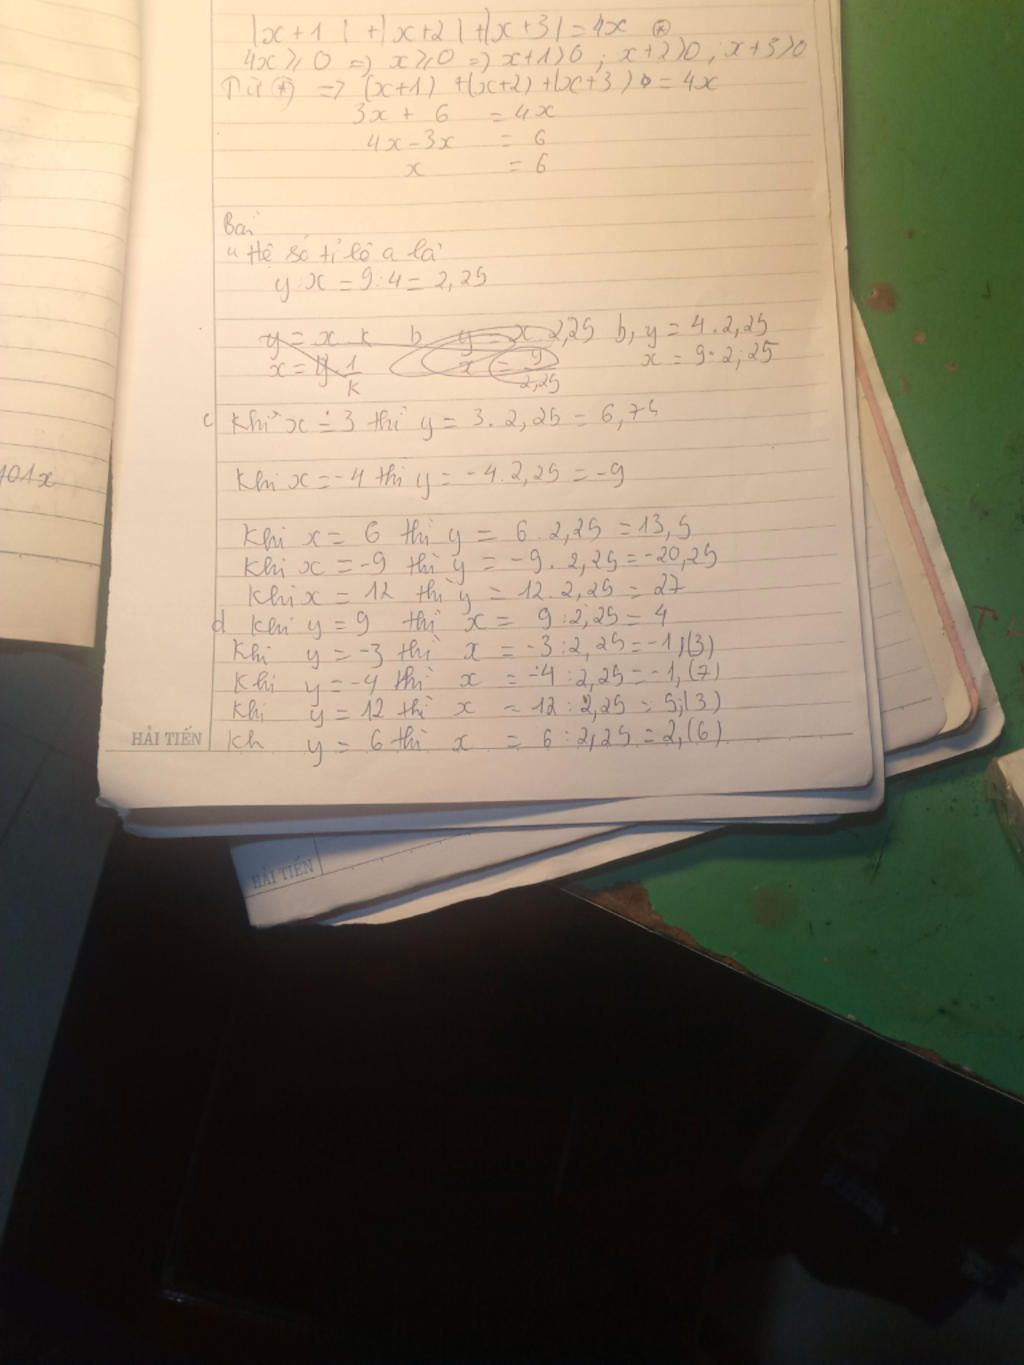 |x+1|+|x+2|+|x+3|=4x (*)
4x ≥ 0 => x ≥ 0 => x+1>0; x+2>0; x+3>0
Từ (*) => (x+1)+(x+2)+(x+3) = 4x
3x + 6 = 4x
4x-3x = 6
x = 6
Bài
a Hệ số tỉ lệ a là
y:x = 9:4 = 2,25
y = x k b y = x.2,25 b, y = 4.2,25
x = y 1/k x = 9/2,25 x = 9:2,25
c Khi x = 3 thì y = 3.2,25 = 6,75
Khi x = -4 thì y = -4.2,25 = -9
Khi x = 6 thì y = 6.2,25 = 13,5
Khi x = -9 thì y = -9.2,25 = -20,25
Khi x = 12 thì y = 12.2,25 = 27
d Khi y = 9 thì x = 9:2,25 = 4
Khi y = -3 thì x = -3:2,25 = -1,(3)
Khi y = -4 thì x = -4:2,25 = -1,(7)
Khi y = 12 thì x = 12:2,25 = 5,(3)
Kh y = 6 thì x = 6:2,25 = 2,(6)
HẢI TIẾN
HẢI TIẾN
101x